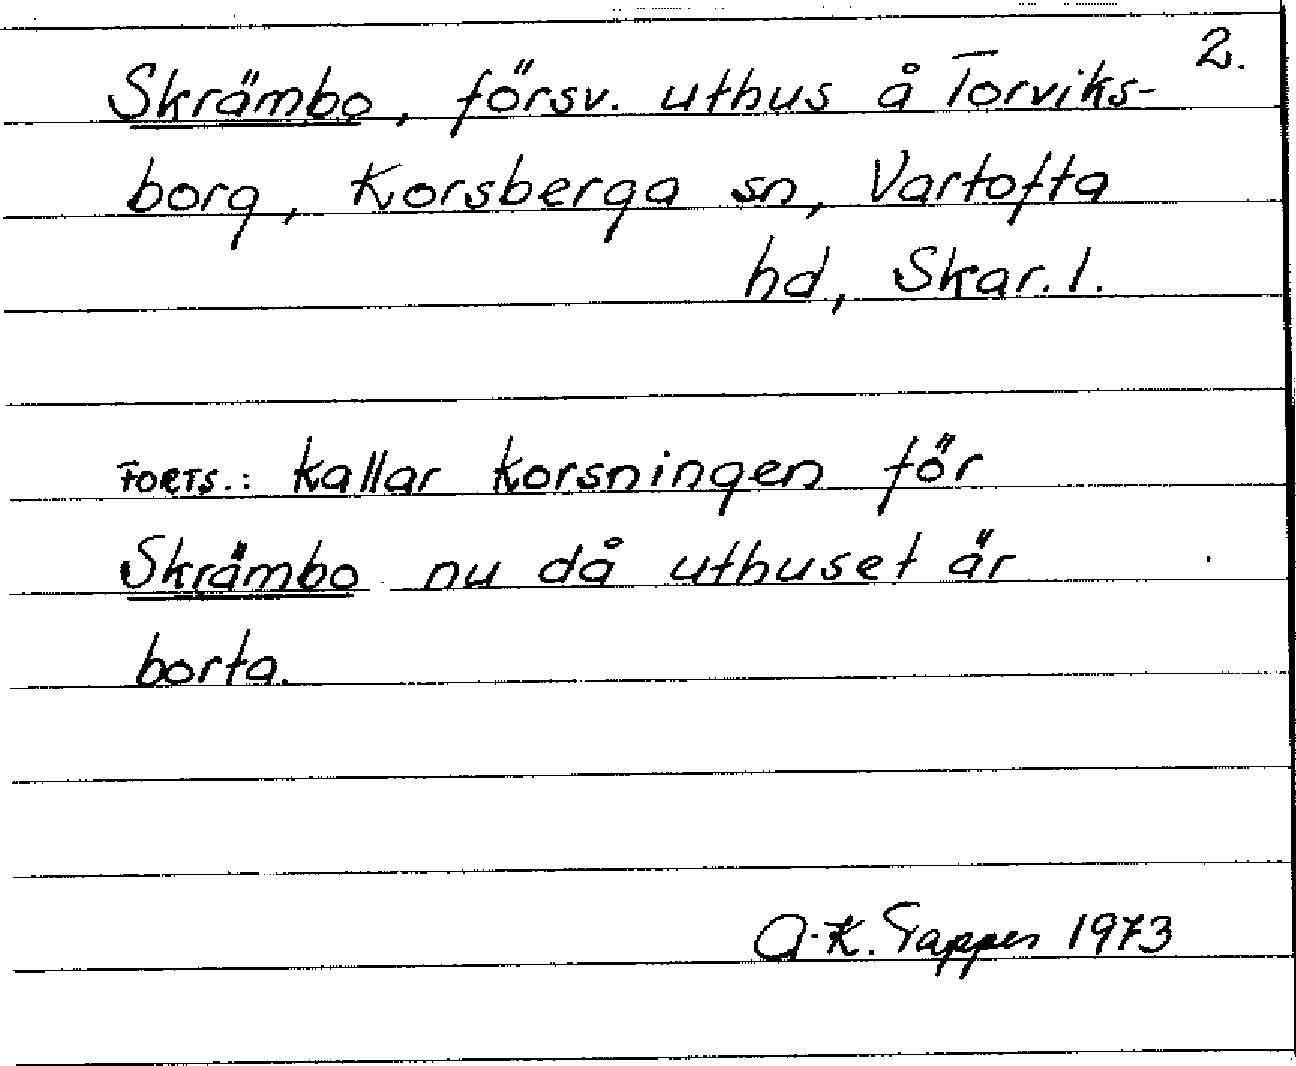 2.
Skrämbo, försv. uthus å Torviks-
borg, Korsberga sn, Vartofta
hd, Skar. l.
FORTS.: kallar korsningen för
Skrämbo nu då uthuset är
borta.
A-K. Tapper 1973